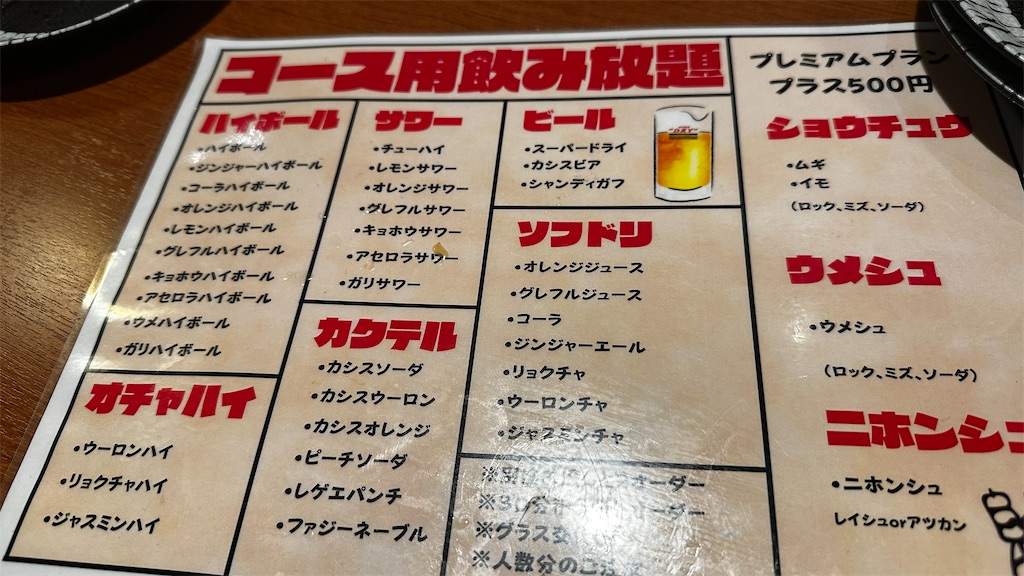 コース用飲み放題
ハイボール
•ハイボール
•ジンジャーハイボール
•コーラハイボール
•オレンジハイボール
•レモンハイボール
•グレフルハイボール
•キョホウハイボール
•アセロラハイボール
•ウメハイボール
•ガリハイボール
オチャハイ
•ウーロンハイ
•リョクチャハイ
•ジャスミンハイ
サワー
•チューハイ
•レモンサワー
•オレンジサワー
•グレフルサワー
•キョホウサワー
•アセロラサワー
•ガリサワー
カクテル
•カシスソーダ
•カシスウーロン
•カシスオレンジ
•ピーチソーダ
•レゲエパンチ
•ファジーネーブル
ビール
•スーパードライ
•カシスビア
•シャンディガフ
ソフドリ
•オレンジジュース
•グレフルジュース
•コーラ
•ジンジャーエール
•リョクチャ
•ウーロンチャ
•ジャスミンチャ
オーダー
オーダー
※グラス
※人数分のご
プレミアムプラン
プラス500円
ショウチュウ
•ムギ
•イモ
(ロック、ミズ、ソーダ)
ウメシュ
•ウメシュ
(ロック、ミズ、ソーダ)
ニホンシュ
•ニホンシュ
レイシュorアツカン